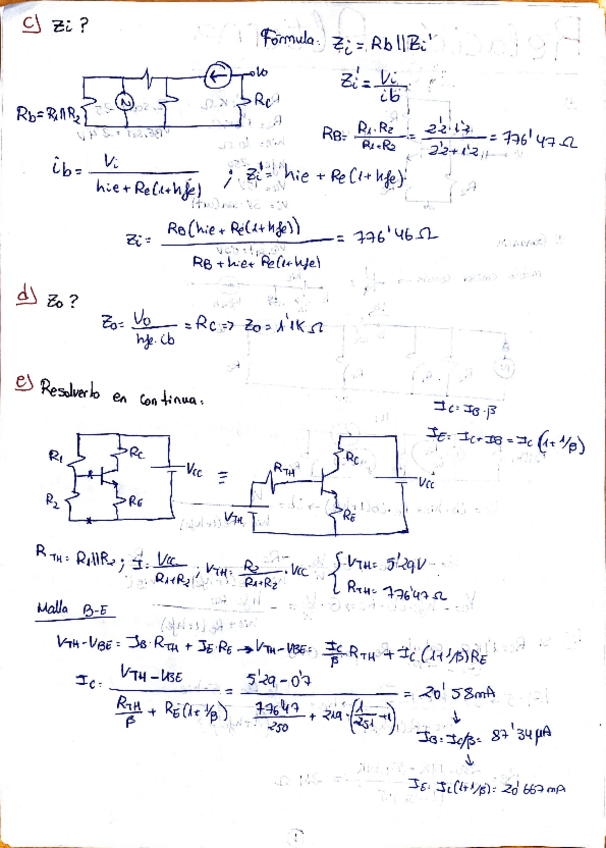 c) Zi ?
Fórmula: Zi = Rb || Zi'
Zi' = Vi / ib
Rb = R1 || R2
Rc
RB = R1·R2 / R1+R2 = 2'2·1'2 / 2'2+1'2 = 776'47 Ω
ib = Vi / hie + Re(1+hfe) ; Zi' = hie + Re(1+hfe)
Zi = RB(hie + Re(1+hfe)) / RB + hie + Re(1+hfe) = 776'46 Ω
d) Zo ?
Zo = Vo / hfe·ib = Rc => Zo = 1'1K Ω
e) Resolverlo en continua.
Ic = IB·β
IE = Ic + IB = Ic (1+1/β)
R1 Rc Vcc R2 RE ≡ RTH Rc Vcc VTH RE
RTH = R1||R2 ; I = Vcc / R1+R2 ; VTH = R2 / R1+R2 · Vcc { VTH = 5'29V
RTH = 776'47 Ω
Malla B-E
VTH - VBE = IB·RTH + IE·RE → VTH - VBE = Ic/β RTH + Ic (1+1/β)RE
Ic = VTH - VBE / RTH/β + RE(1+1/β) = 5'29 - 0'7 / 776'47/250 + 219·(1/251 + 1) = 20'58mA
↓
IB = Ic/β = 87'34 μA
↓
IE = Ic(1+1/β) = 20'667mA